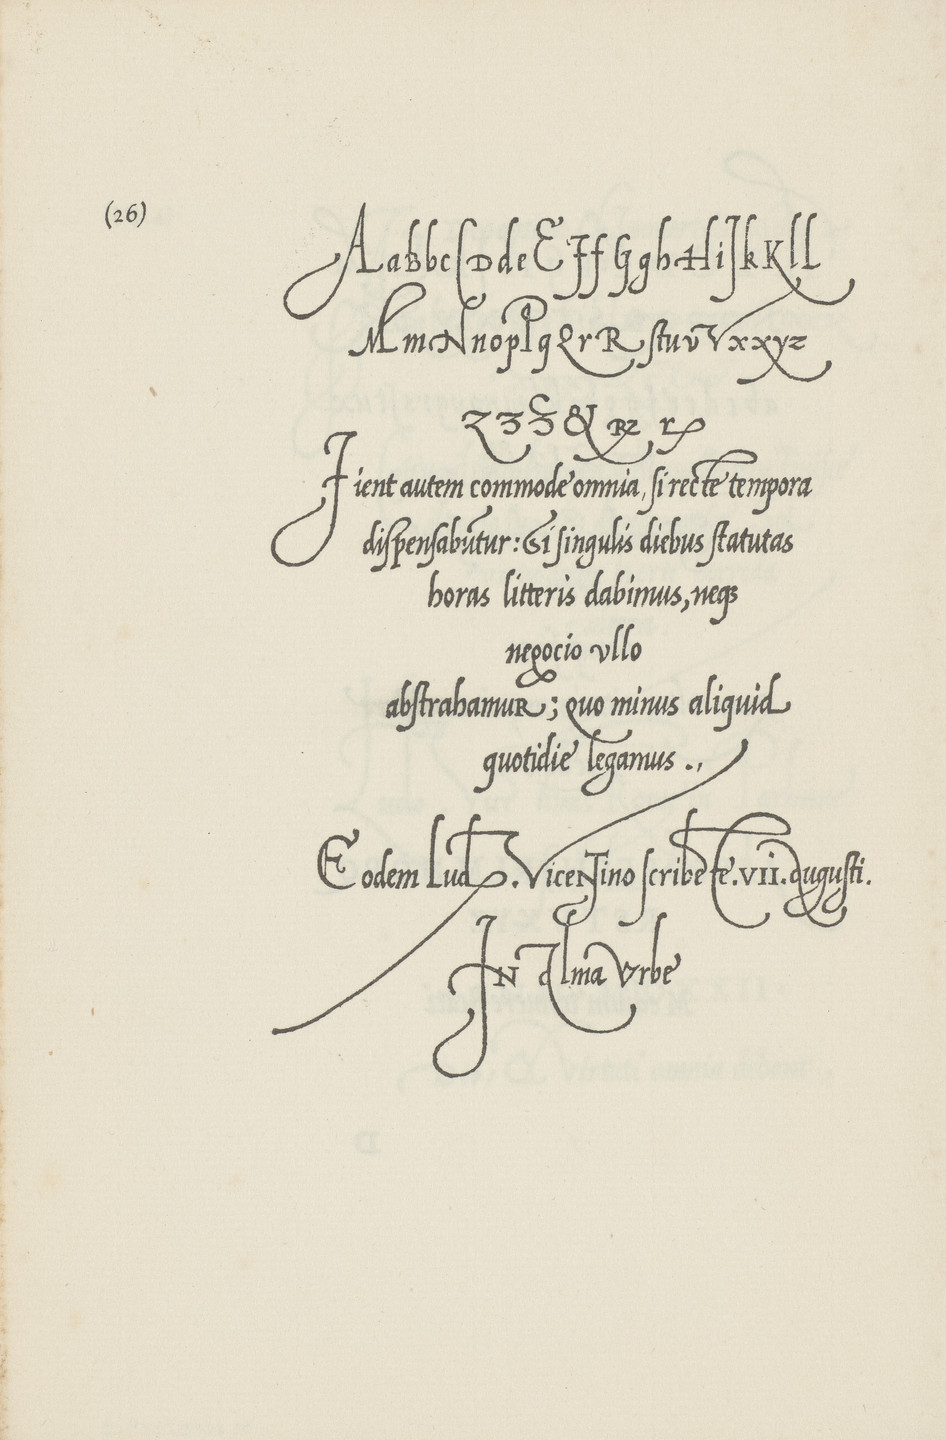 (26)
AabbcCDdeEFfGghHiJkKll
MmNnopPqQrRstuvVxxyz
Z33&Rr
Fient autem commode omnia, si recte tempora
dispensabūtur: Et si singulis diebus statutas
horas litteris dabimus, neqꝫ
negocio vllo
abstrahamuR; quo minus aliquid
quotidie legamus .,
Eodem Lud. ViceNTino scribēte .VII. Augusti.
IN Alma Vrbe